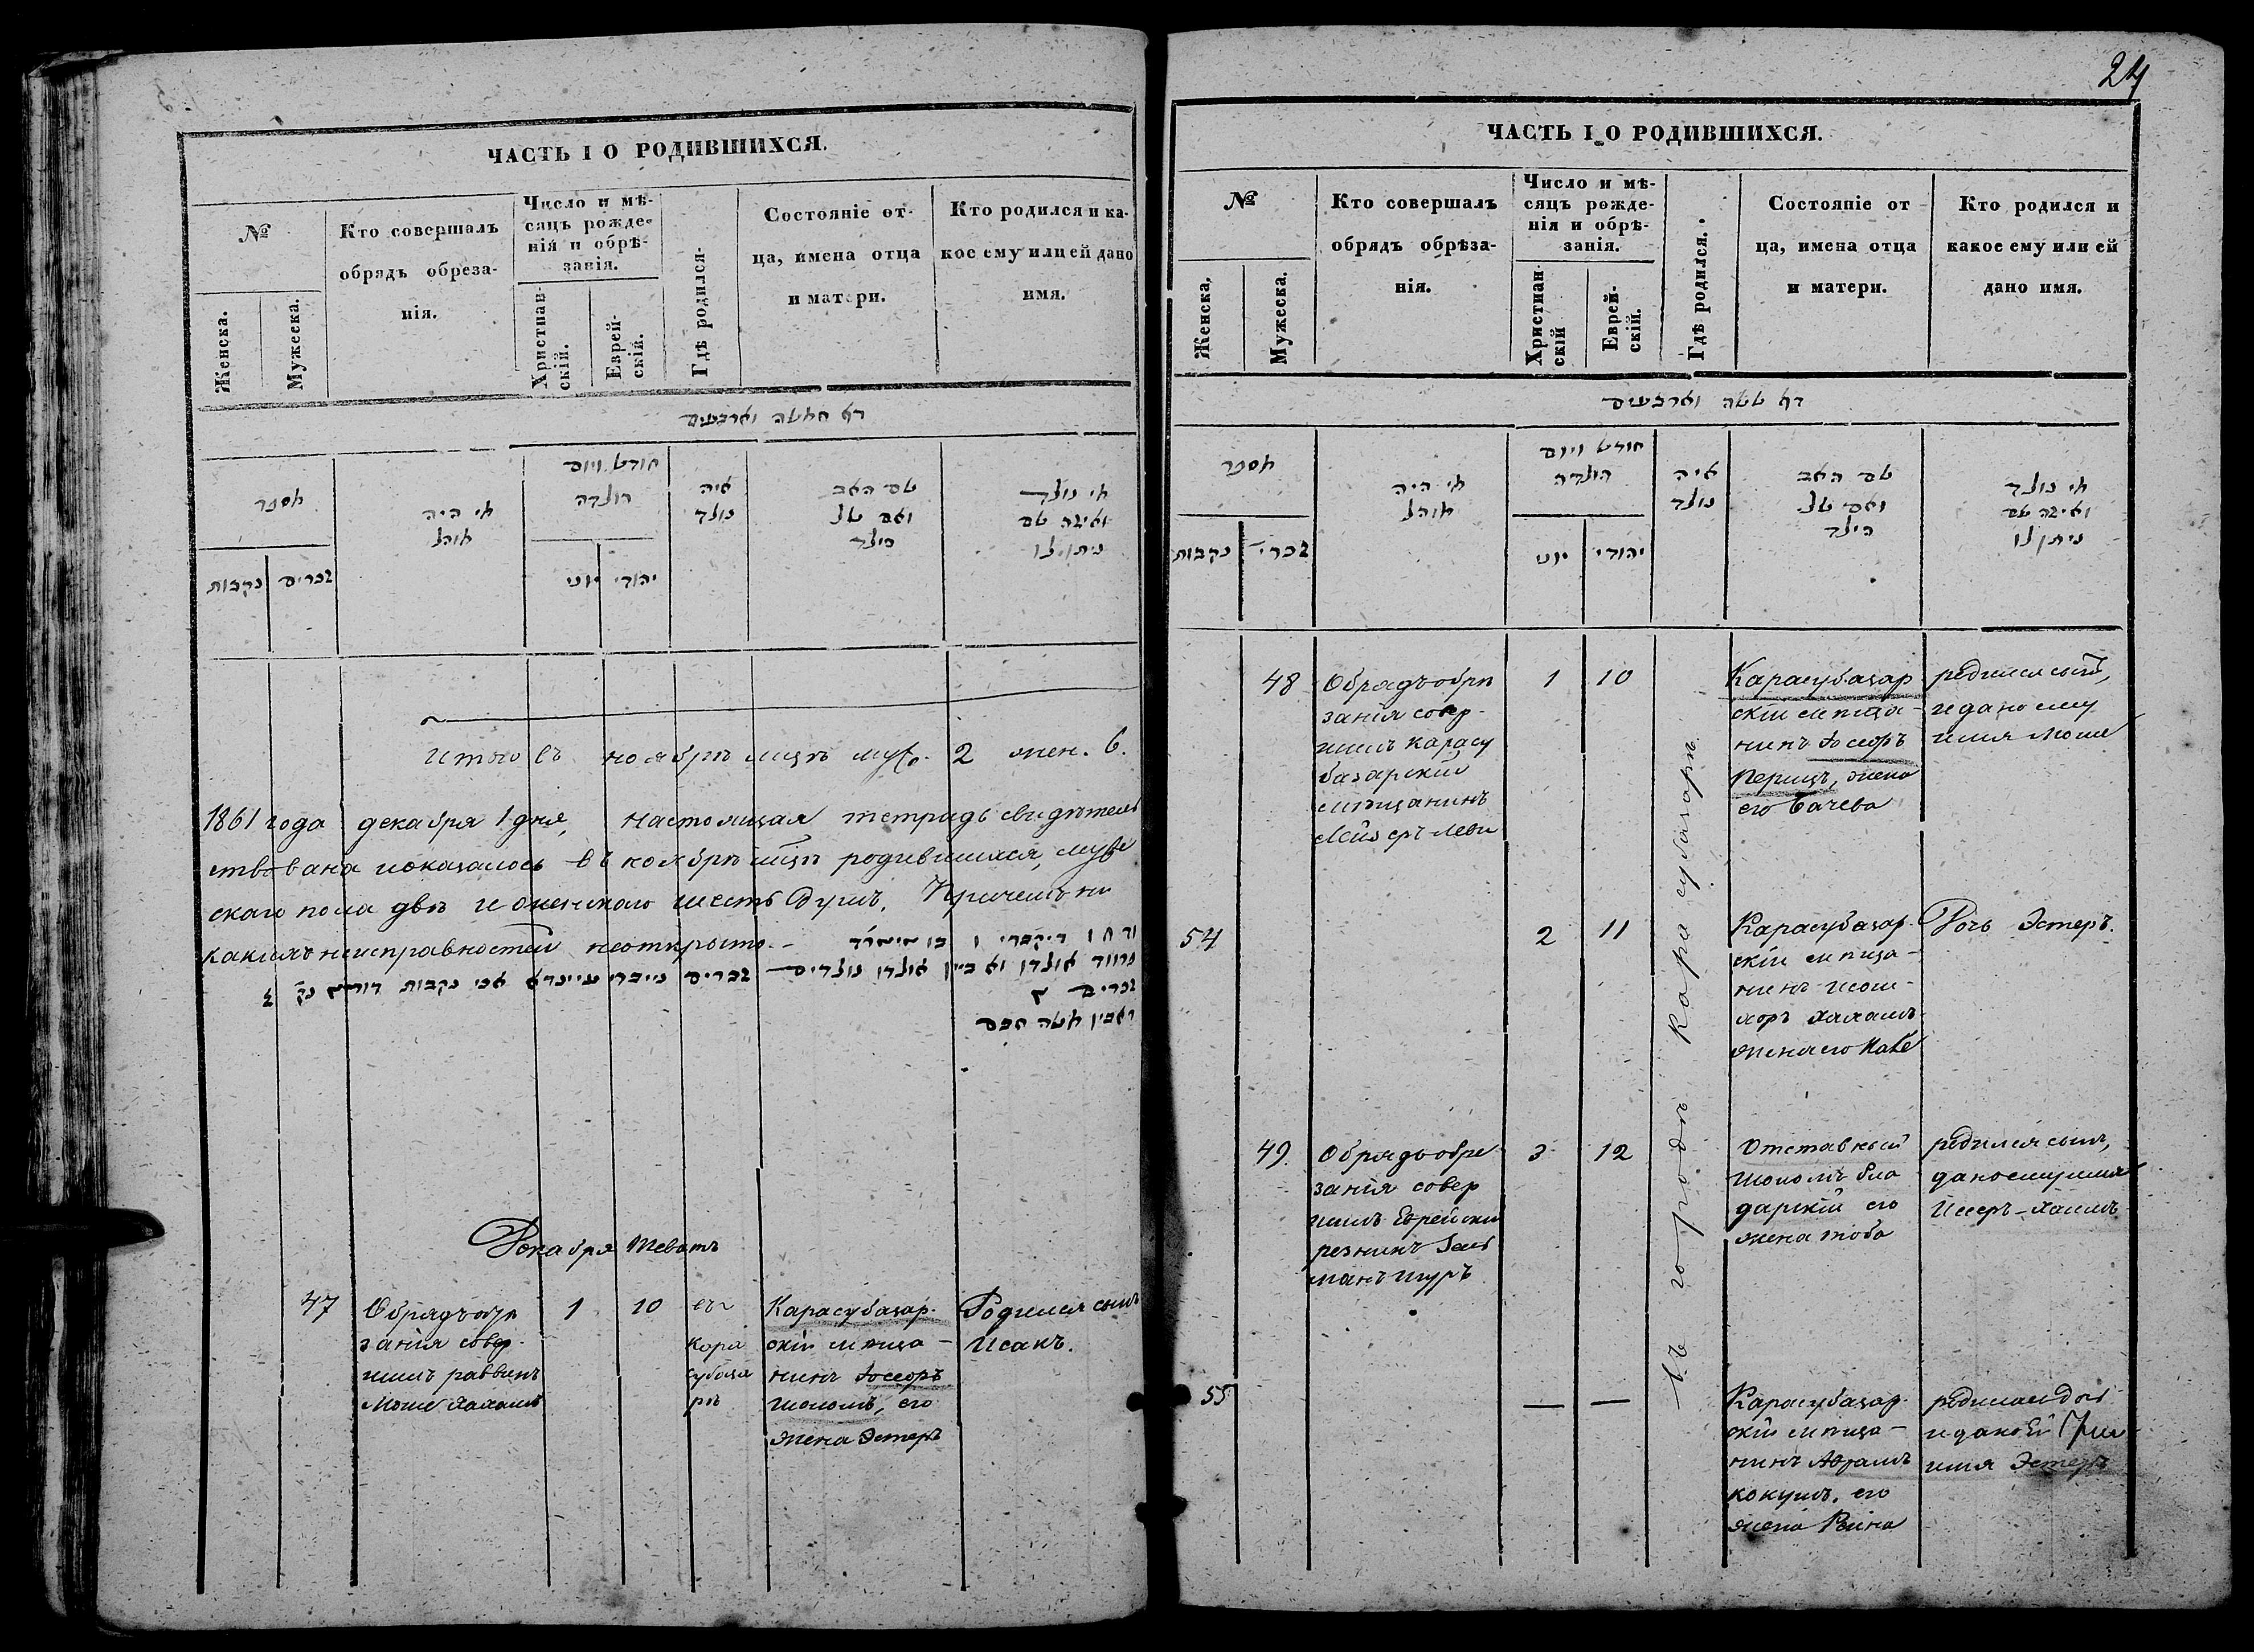 ЧАСТЬ I О РОДИВШИХСЯ.
№
Женска.
Мужеска.
Кто совершалъ
обрядъ обреза-
нія.
Число и мѣ-
сяцъ рожде-
нія и обрѣ-
занія.
Христиан-
скій.
Еврей-
скій.
Гдѣ родился.
Состояніе от-
ца, имена отца
и матери.
Кто родился и ка-
кое ему или ей дано
имя.
דף חמשה וארבעים
מספר
נקבות
זכרים
מי היה
מוהל
חודש ויום
הולדה
יוני
יהודי
איה
נולד
שם האב
ואם של
הילד
מי נולד
ואיזה שם
ניתן לו
Итого въ ноябрѣ мцѣ муж. 2 жен. 6.
1861 года декабря 1 дня, настоящая тетрадь свидѣтель
ствована показалось въ ноябрѣ мцѣ родившихся, муже
скаго пола двѣ и женскаго шесть душъ. Причемъ ни
какихъ неисправностей неоткрыто
Декабря Теватъ
47
Обрядъ обрѣ
занія совер-
шилъ раввинъ
Моше Хахамъ
1
10
въ
Кара
субаза
рѣ
Карасубазар-
скій мѣща-
нинъ Іосефъ
Шоломъ, его
жена Эстеръ
Родился сынъ
Исакъ.
24
ЧАСТЬ I О РОДИВШИХСЯ.
№
Женска.
Мужеска.
Кто совершалъ
обрядъ обрѣза-
нія.
Число и мѣ-
сяцъ рожде-
нія и обрѣ-
занія.
Христиан-
скій
Еврей-
скій.
Гдѣ родился.
Состояніе от
ца, имена отца
и матери.
Кто родился и
какое ему или ей
дано имя.
דף ששה וארבעים
מספר
נקבות
זכרי
מי היה
מוהל
חודש ויום
הולדה
יוני
יהודי
איה
נולד
שם האב
ואם של
הילד
מי נולד
ואיזה שם
ניתן לו
въ городѣ Карасубазарѣ
48
Обрядъ обрѣ
занія совер-
шилъ Карасу
базарскій
мѣщанинъ
Мейзеръ Леви
1
10
Карасубазар
скій мѣща-
нинъ Іосефъ
Перицъ, жена
его Бачева
родился сынъ,
и дано ему
имя Моше
54
2
11
Карасубазар-
скій мѣща-
нинъ
Хахамъ
жена его
Дочь Эстеръ.
49.
Обрядъ обре
занія совер
шилъ Еврейски
резникъ
3
12
Отставный
Шоломъ Бло
дарскій его
жена Тоба
родился сынъ,
дано ему имя
Иссеръ-Хаимъ
55
—
—
Карасубазар-
скій мѣща-
нинъ Аврамъ
Кокушъ, его
жена Рейна
родилась дочь
и дано Ей
имя Эстеръ